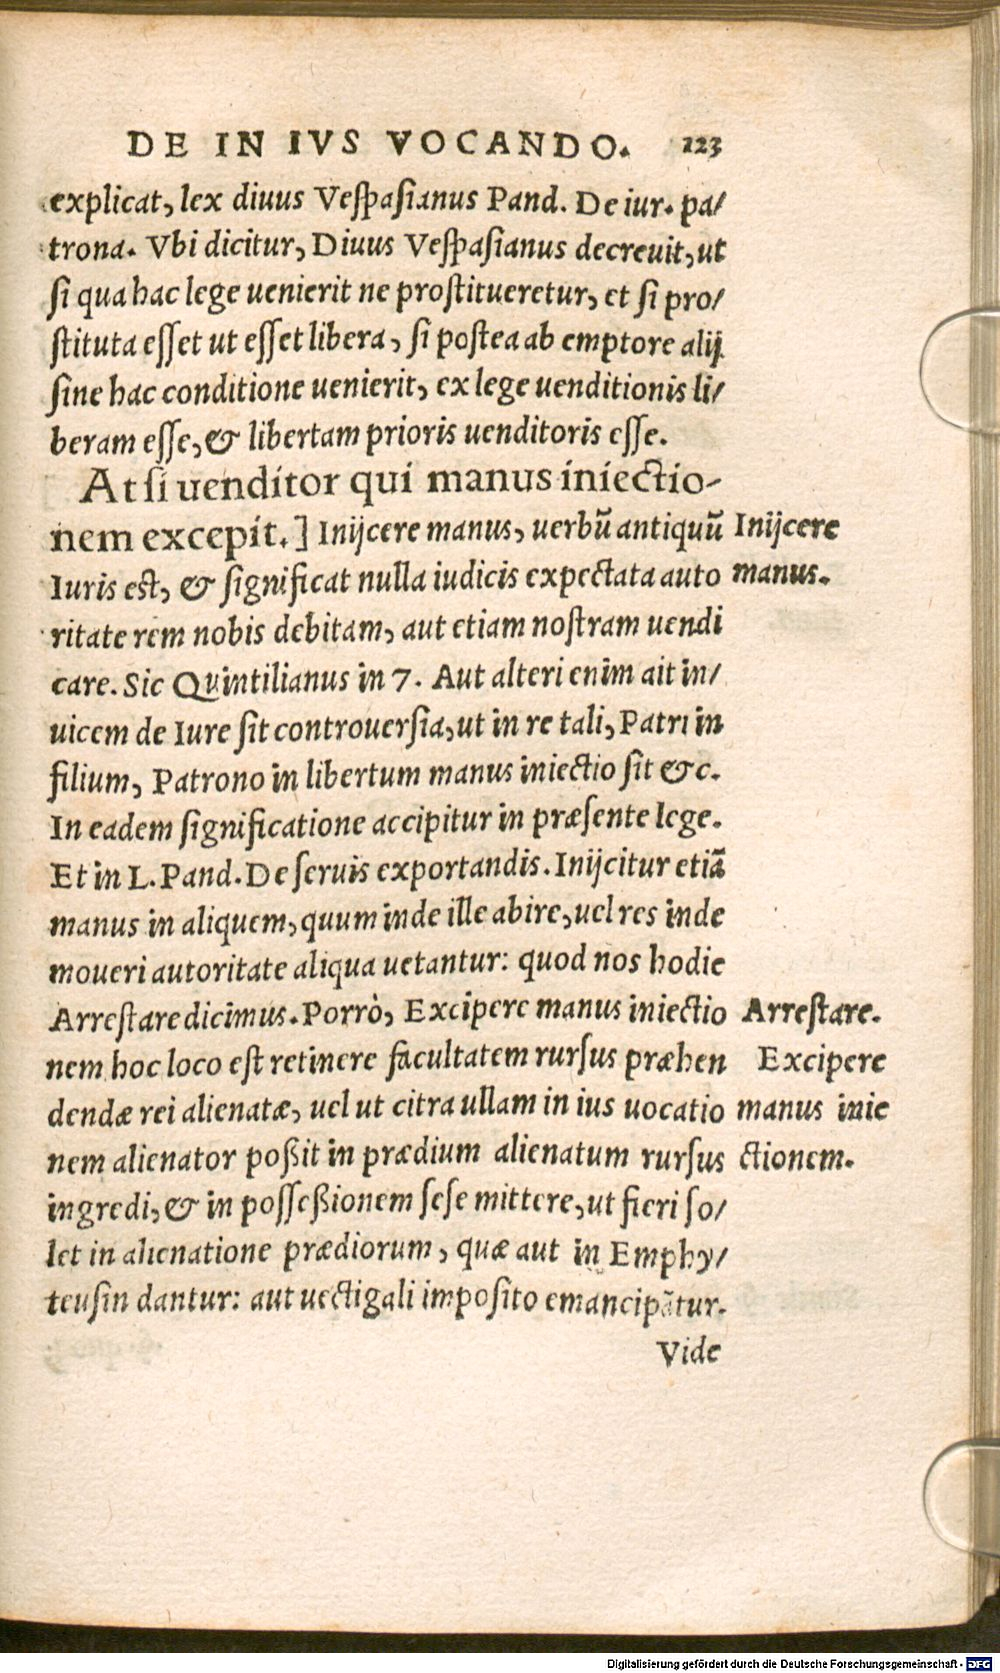 DE IN IVS VOCANDO. 123
explicat, lex diuus Veſpaſianus Pand. De iur. pa/
trona. Vbi dicitur, Diuus Veſpaſianus decreuit, ut
ſi qua hac lege uenierit ne proſtitueretur, et ſi pro/
ſtituta eſſet ut eſſet libera, ſi poſtea ab emptore alij
ſine hac conditione uenierit, ex lege uenditionis li/
beram eſſe, & libertam prioris uenditoris eſſe.
At ſi uenditor qui manus iniectio-
nem excepit.] Inijcere manus, uerbū antiquū
Inijcere
Iuris eſt, & ſignificat nulla iudicis expectata auto
manus.
ritate rem nobis debitam, aut etiam noſtram uendi
care. Sic Quintilianus in 7. Aut alteri enim ait in/
uicem de Iure ſit controuerſia, ut in re tali, Patri in
filium, Patrono in libertum manus iniectio ſit &c.
In eadem ſignificatione accipitur in præſente lege.
Et in L. Pand. De ſeruis exportandis. Inijcitur etiā
manus in aliquem, quum inde ille abire, uel res inde
moueri autoritate aliqua uetantur: quod nos hodie
Arreſtare dicimus. Porrò, Excipere manus iniectio
Arreſtare.
nem hoc loco eſt retinere facultatem rurſus præhen
Excipere
dendæ rei alienatæ, uel ut citra ullam in ius uocatio
manus inie
nem alienator poßit in prædium alienatum rurſus
ctionem.
ingredi, & in poſſeßionem ſeſe mittere, ut fieri ſo/
let in alienatione prædiorum, quæ aut in Emphy/
teuſin dantur: aut uectigali impoſito emancipātur.
Vide
Digitalisierung gefördert durch die Deutsche Forschungsgemeinschaft - DFG